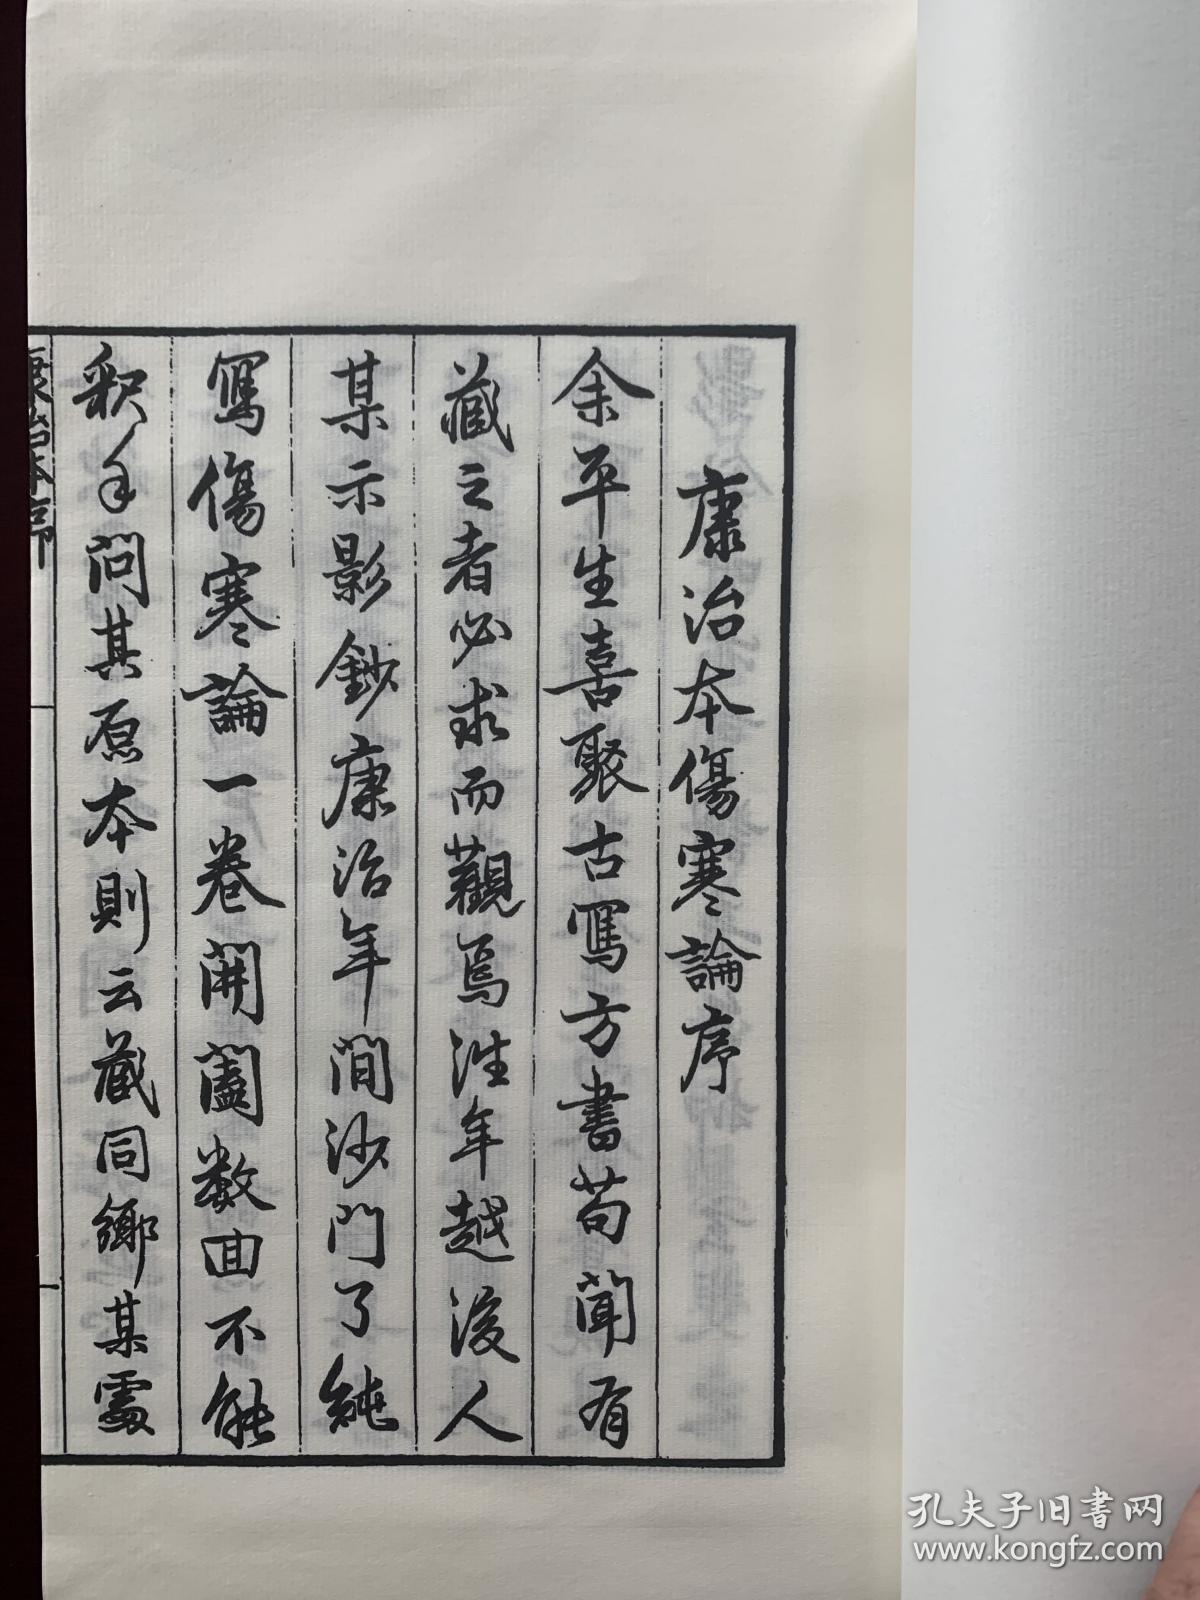 康治本傷寒論序
余平生喜聚古寫方書苟聞有
藏之者必求而觀焉往年越後人
某示影鈔康治年間沙門了純
寫傷寒論一卷開闔数回不能
釈手問其原本則云藏同鄉某處
康治本序
一
孔夫子旧书网
www.kongfz.com